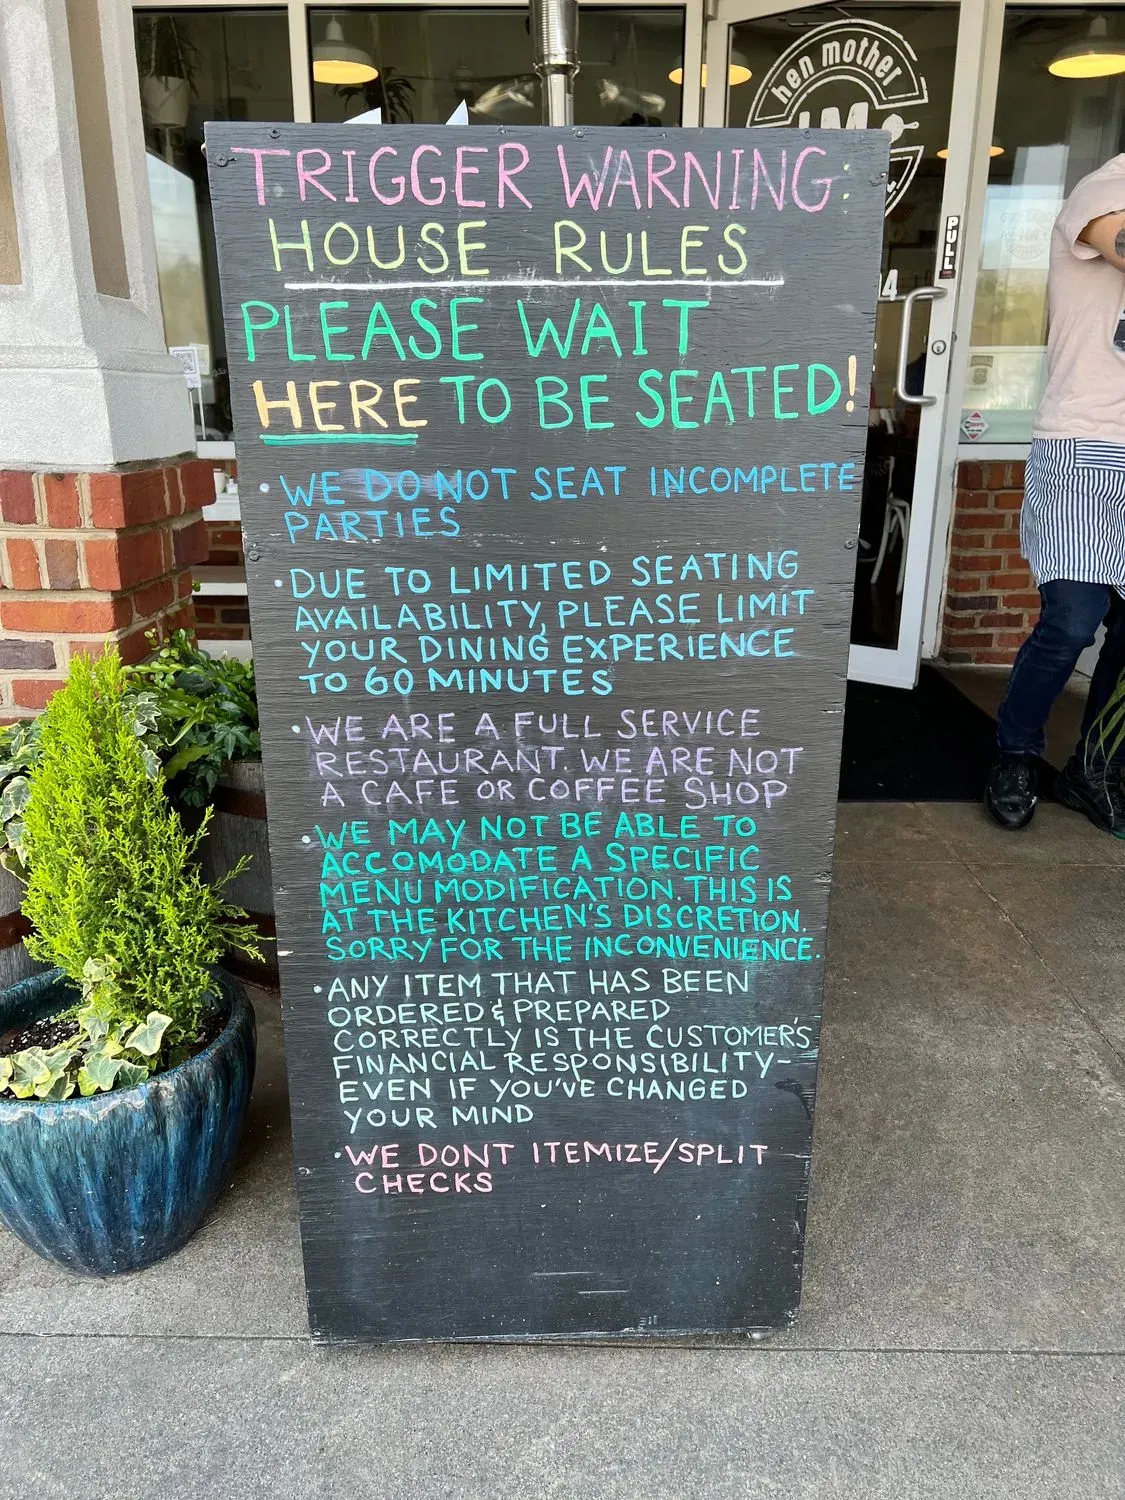 hen mother
PULL
TRIGGER WARNING:
HOUSE RULES
PLEASE WAIT
HERE TO BE SEATED!
• WE DO NOT SEAT INCOMPLETE
PARTIES
• DUE TO LIMITED SEATING
AVAILABILITY, PLEASE LIMIT
YOUR DINING EXPERIENCE
TO 60 MINUTES
• WE ARE A FULL SERVICE
RESTAURANT. WE ARE NOT
A CAFE OR COFFEE SHOP
• WE MAY NOT BE ABLE TO
ACCOMODATE A SPECIFIC
MENU MODIFICATION. THIS IS
AT THE KITCHEN'S DISCRETION.
SORRY FOR THE INCONVENIENCE.
• ANY ITEM THAT HAS BEEN
ORDERED & PREPARED
CORRECTLY IS THE CUSTOMER'S
FINANCIAL RESPONSIBILITY-
EVEN IF YOU'VE CHANGED
YOUR MIND
• WE DONT ITEMIZE/SPLIT
CHECKS